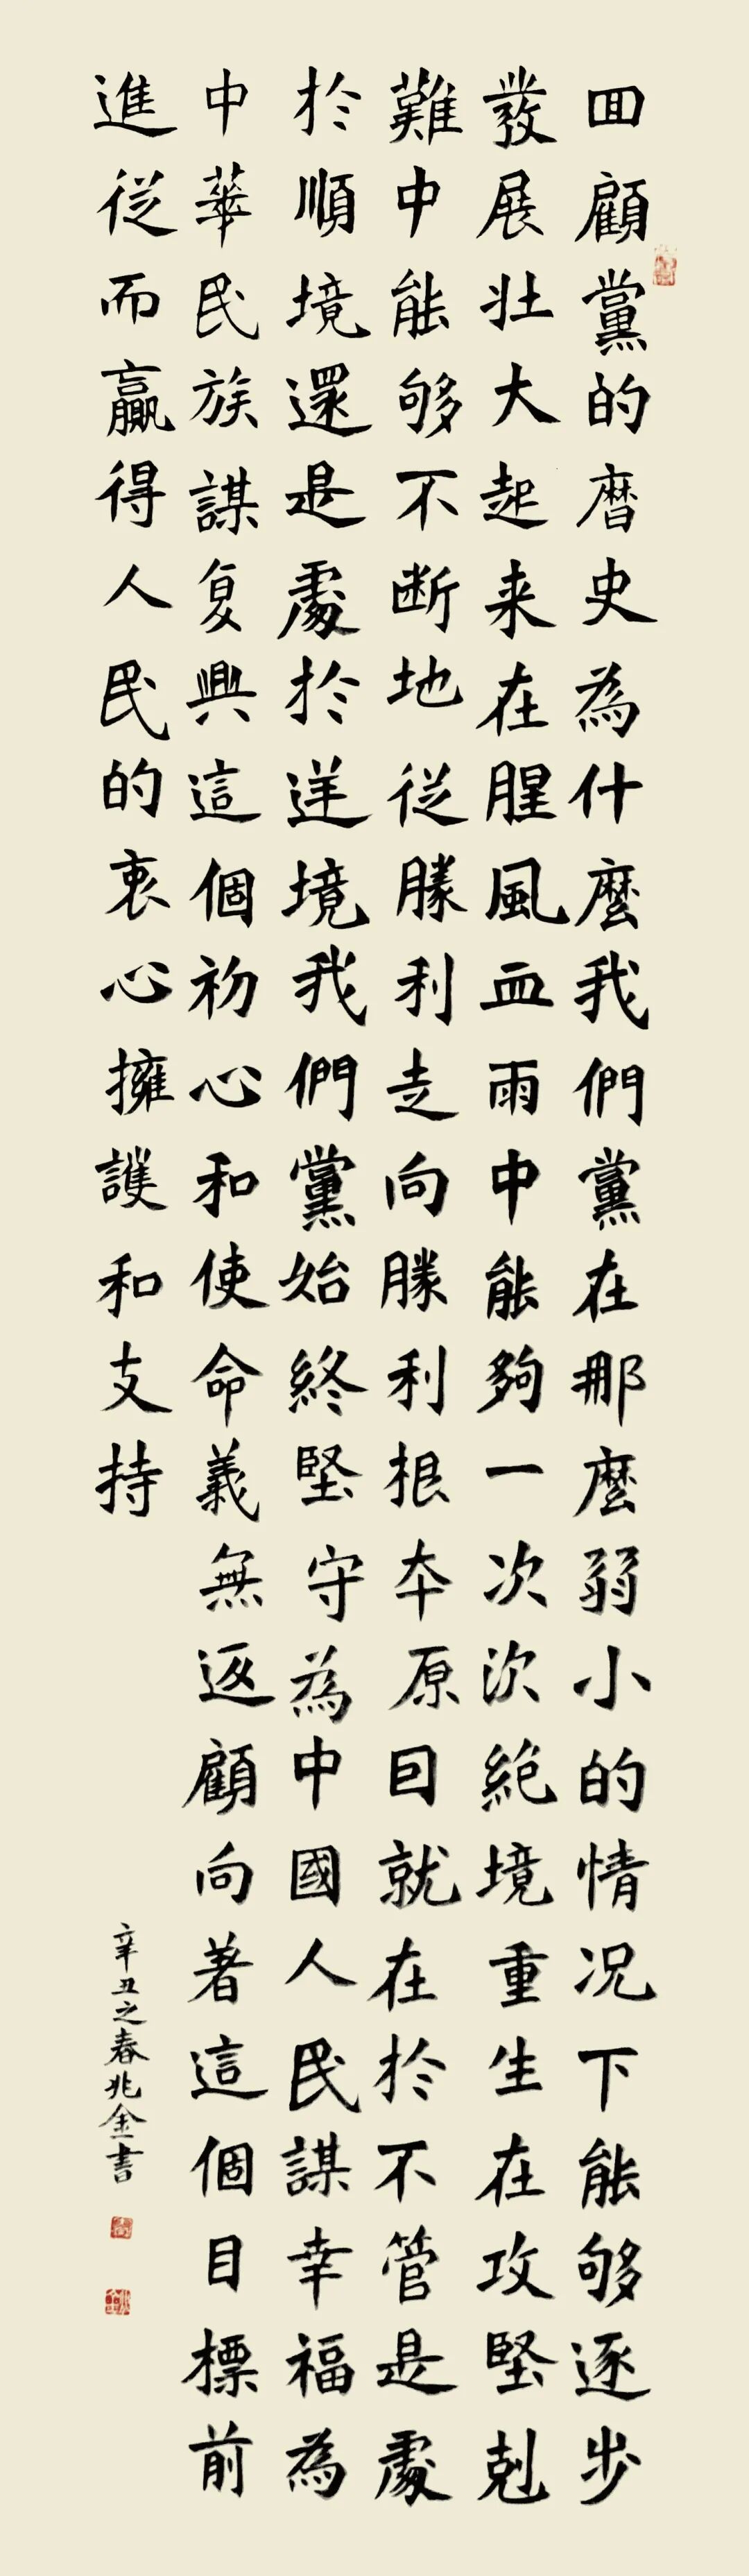 回顧黨的曆史為什麼我們黨在那麼弱小的情况下能够逐步
發展壯大起来在腥風血雨中能夠一次次絕境重生在攻堅剋
難中能够不断地從勝利走向勝利根本原因就在於不管是處
於順境還是處於逆境我們黨始終堅守為中國人民謀幸福為
中華民族謀复興這個初心和使命義無返顧向著這個目標前
進從而贏得人民的衷心擁護和支持
辛丑之春兆金書